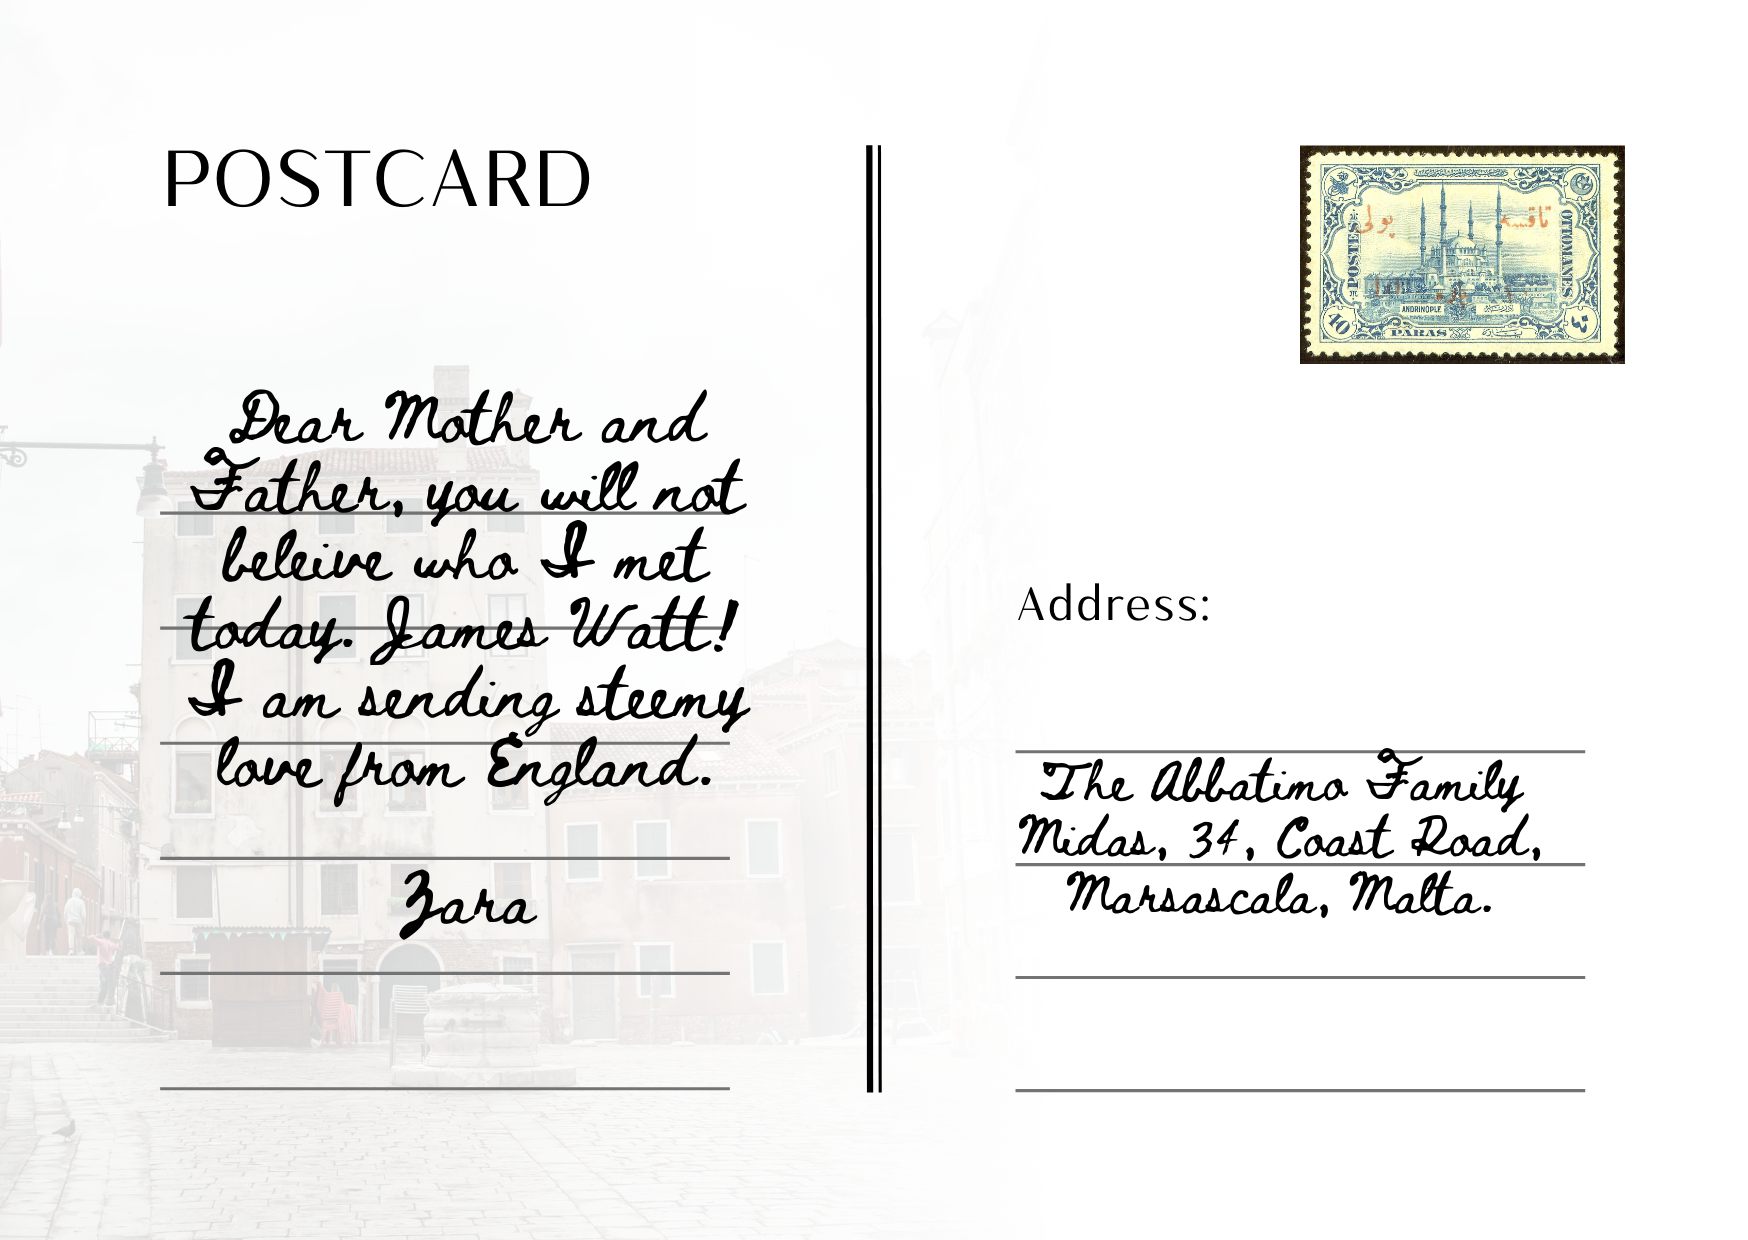 POSTCARD
Dear Mother and
Father, you will not
beleive who I met
today. James Watt!
I am sending steemy
love from England.
Zara
پولی
تاقسه
POSTES
OTTOMANES
ANDRINOPLE
10
PARAS
Address:
The Abbatimo Family
Midas, 34, Coast Road,
Marsascala, Malta.